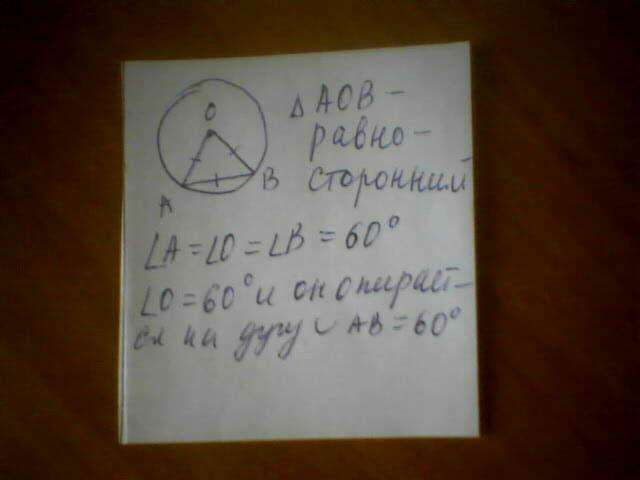 O
A
B
△ AOB –
равно-
сторонний
∠A = ∠O = ∠B = 60°
∠O = 60° и он опирает-
ся на дугу ◡ AB = 60°